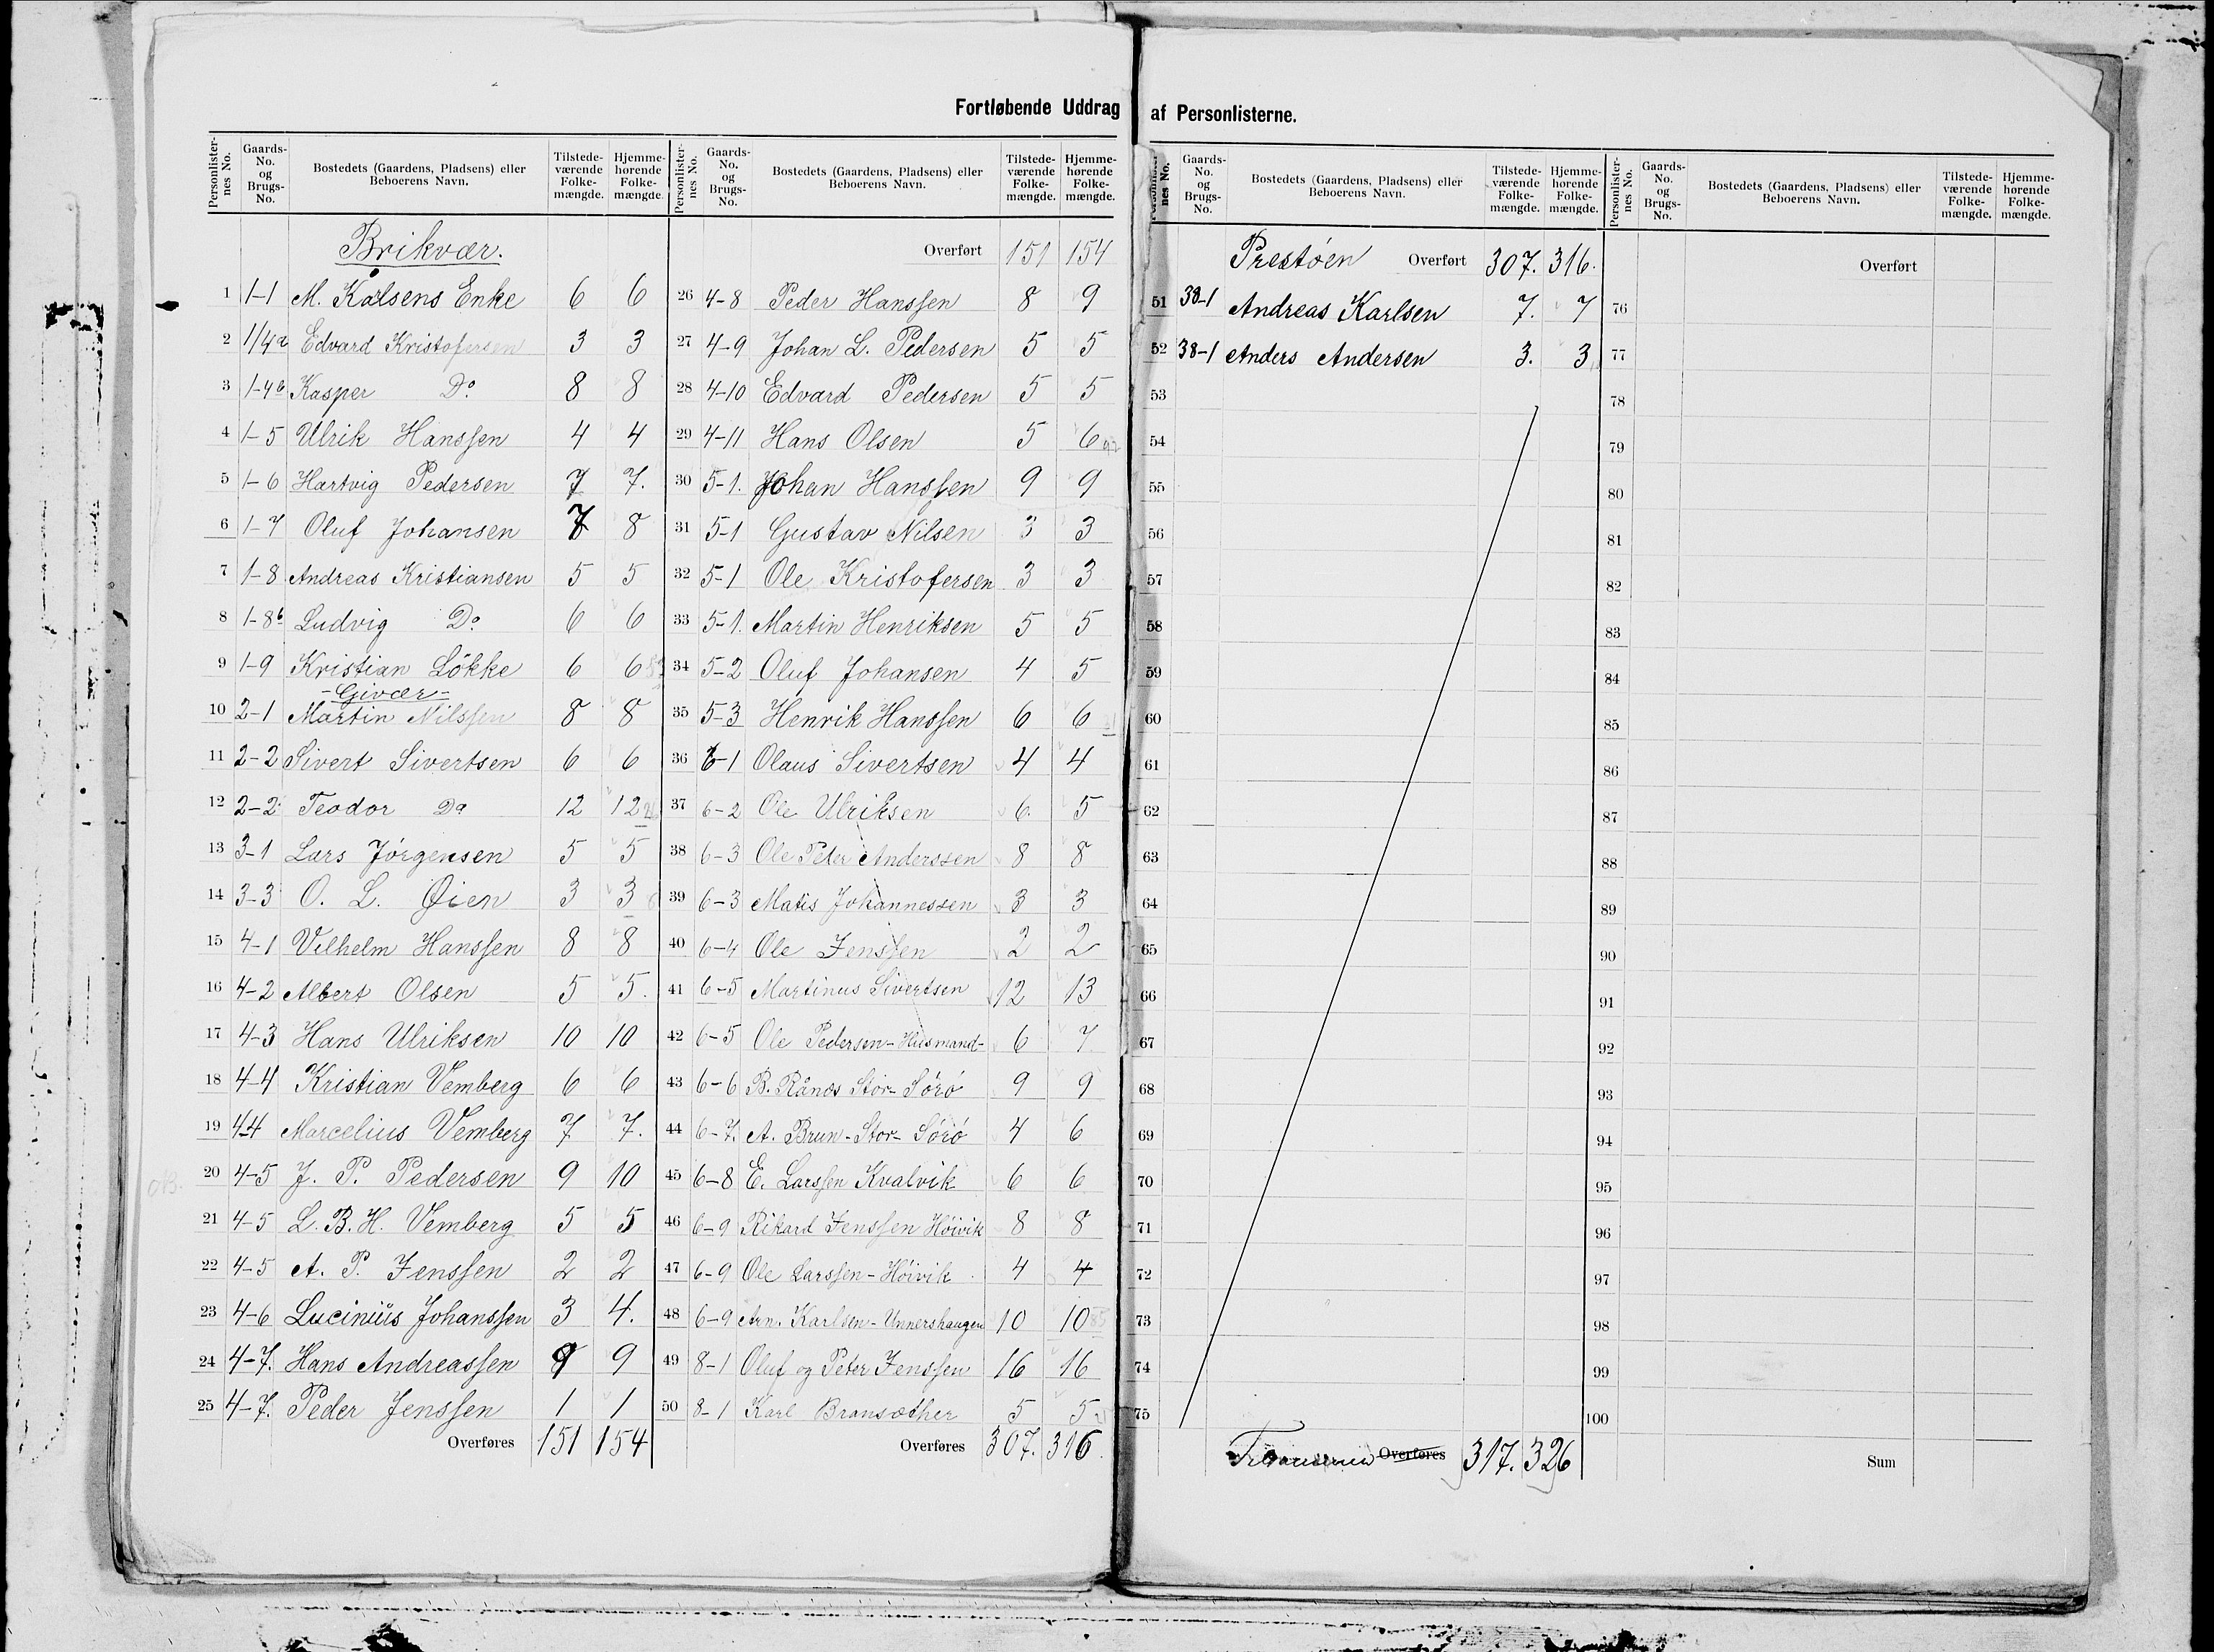 Fortløbende Uddrag af Personlisterne.
Personlister-nes No. Gaards-No. og Brugs-No. Bostedets (Gaardens, Pladsens) eller Beboerens Navn. Tilstede-værende Folke-mængde. Hjemme-hørende Folke-mængde.
Brikvær.
1 1-1 M. Karlsens Enke 6 6
2 1/4a Edvard Kristofersen 3 3
3 1-4b Kasper Do. 8 8
4 1-5 Ulrik Hanssen 4 4
5 1-6 Hartvig Pedersen 7 7.
6 1-7 Oluf Johansen 7 8
7 1-8 Andreas Kristiansen 5 5
8 1-8b Ludvig Do. 6 6
9 1-9 Kristian Løkke 6 6
-Givær-
10 2-1 Martin Nilssen 8 8
11 2-2 Sivert Sivertsen 6 6
12 2-2 Teodor Do 12 12
13 3-1 Lars Jørgensen 5 5
14 3-3 O. L. Øien 3 3
15 4-1 Vilhelm Hanssen 8 8
16 4-2 Albert Olsen 5 5.
17 4-3 Hans Ulriksen 10 10
18 4-4 Kristian Vemberg 6 6
19 4-4 Marcelius Vemberg 7 7.
20 4-5 J. P. Pedersen 9 10
21 4-5 L. B. H. Vemberg 5 5
22 4-5 A. P. Jenssen 2 2
23 4-6 Lucinius Johanssen 3 4.
24 4-7. Hans Andreassen 9 9
25 4-7. Peder Jenssen 1 1
Overføres 151 154
Personlister-nes No. Gaards-No. og Brugs-No. Bostedets (Gaardens, Pladsens) eller Beboerens Navn. Tilstede-værende Folke-mængde. Hjemme-hørende Folke-mængde.
Overført 151 154
26 4-8 Peder Hanssen 8 9
27 4-9 Johan L. Pedersen 5 5
28 4-10 Edvard Pedersen 5 5
29 4-11 Hans Olsen 5 6
30 5-1. Johan Hanssen 9 9
31 5-1 Gustav Nilsen 3 3
32 5-1 Ole Kristofersen 3 3
33 5-1. Martin Henriksen 5 5
34 5-2 Oluf Johansen 4 5
35 5-3 Henrik Hanssen 6 6
36 6-1 Olaus Sivertsen 4 4
37 6-2 Ole Ulriksen 6. 5
38 6-3 Ole Peter Anderssen 8 8
39 6-3 Matis Johannessen 3 3
40 6-4 Ole Jenssen 2 2
41 6-5 Martinus Sivertsen 12 13
42 6-5 Ole Pedersen-Husmand- 6 7
43 6-6 B. Rånes Stor-Sørø 9 9
44 6-7. A. Brun-Stor-Sørø 4 6
45 6-8 E. Larssen Kvalvik 6 6
46 6-9 Rikard Jenssen Høivik 8 8
47 6-9 Ole Larssen-Høivik 4 4
48 6-9 Arn. Karlsen-Unnershaugen 10 10
49 8-1 Oluf og Peter Jenssen 16 16
50 8-1 Karl Bransæther 5 5
Overføres 307. 316.
Gaards-No. og Brugs-No. Bostedets (Gaardens, Pladsens) eller Beboerens Navn. Tilstede-værende Folke-mængde. Hjemme-hørende Folke-mængde.
Prestøen Overført 307. 316.
51 38-1 Andreas Karlsen 7. 7
52 38-1 Anders Andersen 3. 3
53
54
55
56
57
58
59
60
61
62
63
64
65
66
67
68
69
70
71
72
73
74
75
Overføres 317. 326
Personlister-nes No. Gaards-No. og Brugs-No. Bostedets (Gaardens, Pladsens) eller Beboerens Navn. Tilstede-værende Folke-mængde. Hjemme-hørende Folke-mængde.
Overført
76
77
78
79
80
81
82
83
84
85
86
87
88
89
90
91
92
93
94
95
96
97
98
99
100
Sum